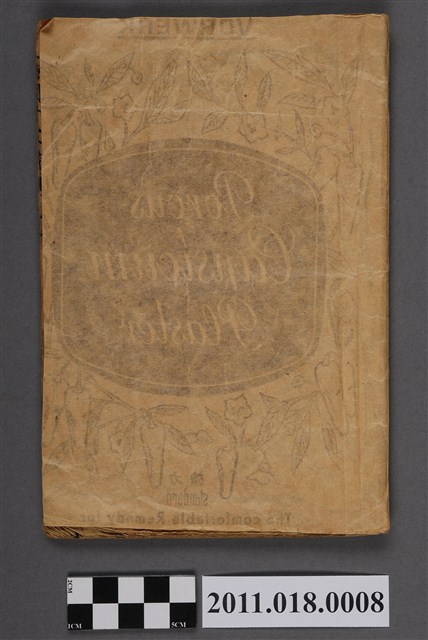 VORWERK
Porous
Capsicum
Plaster
Standard
The comfortable Remedy for
2CM
1CM
5CM
2011.018.0008